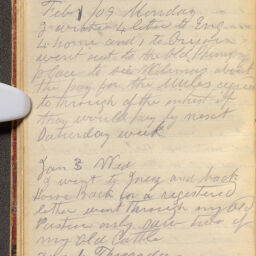 Feby 1 /09 Monday
I wrote 4 letters to Eng
4 home and 1 to
went out to the Old
place to see about
the pay for the Mules agreed
to through of the intrest if
they would pay by next
Saturday week
Jan 3 Wed
I went to and back
Horse Back for a registered
letter went through my Old
Pasture only saw two of
my Old Cattle